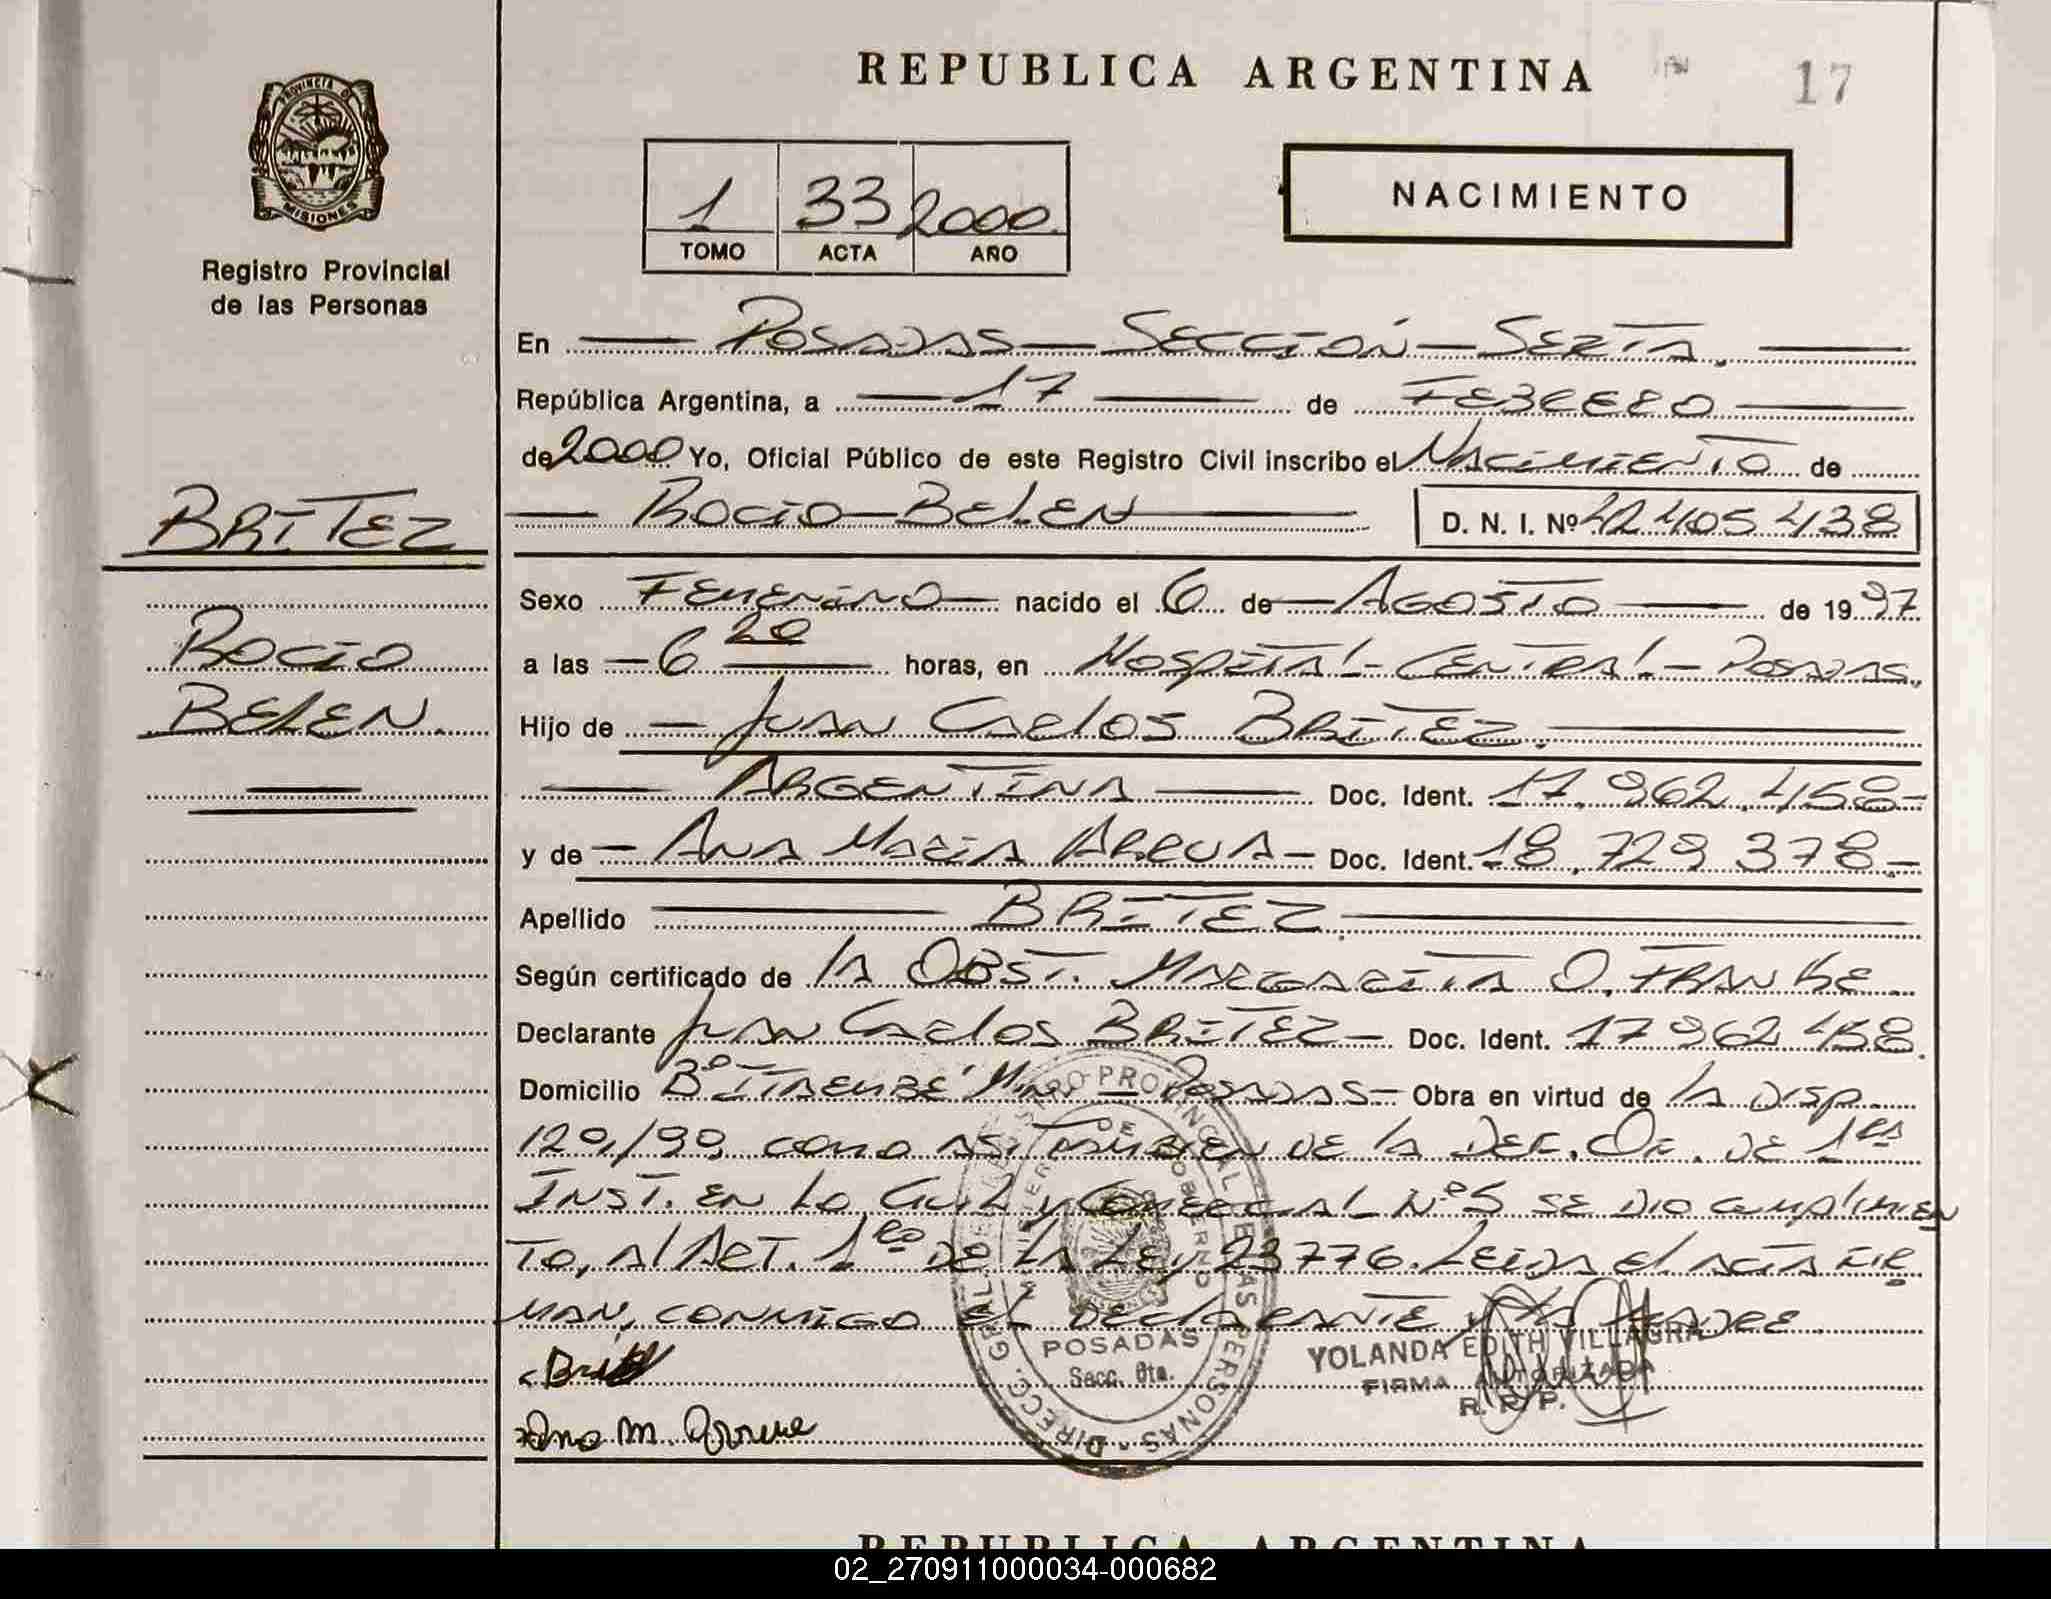 REPUBLICA ARGENTINA
17
PROVINCIA DE
MISIONES
Registro Provincial
de las Personas
1 33 2000
TOMO ACTA AÑO
NACIMIENTO
En POSADAS - SECCIÓN - SEXTA.
República Argentina, a 17 de FEBRERO
de 2000 Yo, Oficial Público de este Registro Civil inscribo el NACIMIENTO de
ROCIO BELEN D. N. I. Nº 42.405.438
BRITEZ
ROCIO
BELEN.
Sexo FEMENINO nacido el 6 de AGOSTO de 1997
a las 6 20 horas, en HOSPITAL - CENTRAL - POSADAS.
Hijo de JUAN CARLOS BRITEZ.
ARGENTINA Doc. Ident. 17.962.458-
y de ANA MARIA ARRUA - Doc. Ident. 18.729.378.-
Apellido BRITEZ.
Según certificado de LA OBST. MARGARITA O. FRANKE
Declarante JUAN CARLOS BRITEZ - Doc. Ident. 17 962 458.
Domicilio Bº ITAEMBÉ MINI - POSADAS - Obra en virtud de LA DISP.
120/99, COMO ASI TAMBIEN DE LA DEF. OF. DE 1ra
INST. EN LO CIVIL y COMERCIAL Nº 5 SE DIO CUMPLIMIEN
TO, AL ART. 1ro DE LA LEY 23776. LEIDA EL ACTA FIR
MAN, CONMIGO EL DECLARANTE y LA MADRE.
Ana M. Arrua
DIRECC. GRAL. DEL REGISTRO PROVINCIAL DE LAS PERSONAS
POSADAS
Secc. 6ta.
YOLANDA EDITH VILLAGRA
FIRMA AUTORIZADA
R. P. P.
REPUBLICA ARGENTINA
02_270911000034-000682